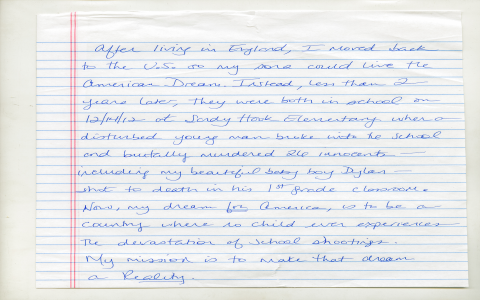 After living in England, I moved back
to the U.S. so my sons could live the
American Dream. Instead, less than 2
years later, they were both in school on
12/14/12 at Sandy Hook Elementary when a
disturbed young man broke into the school
and brutally murdered 26 innocents —
including my beautiful baby boy Dylan —
shot to death in his 1st grade classroom.
Now, my dream for America, is to be a
country where no child ever experiences
the devastation of school shootings.
My mission is to make that dream
a Reality.